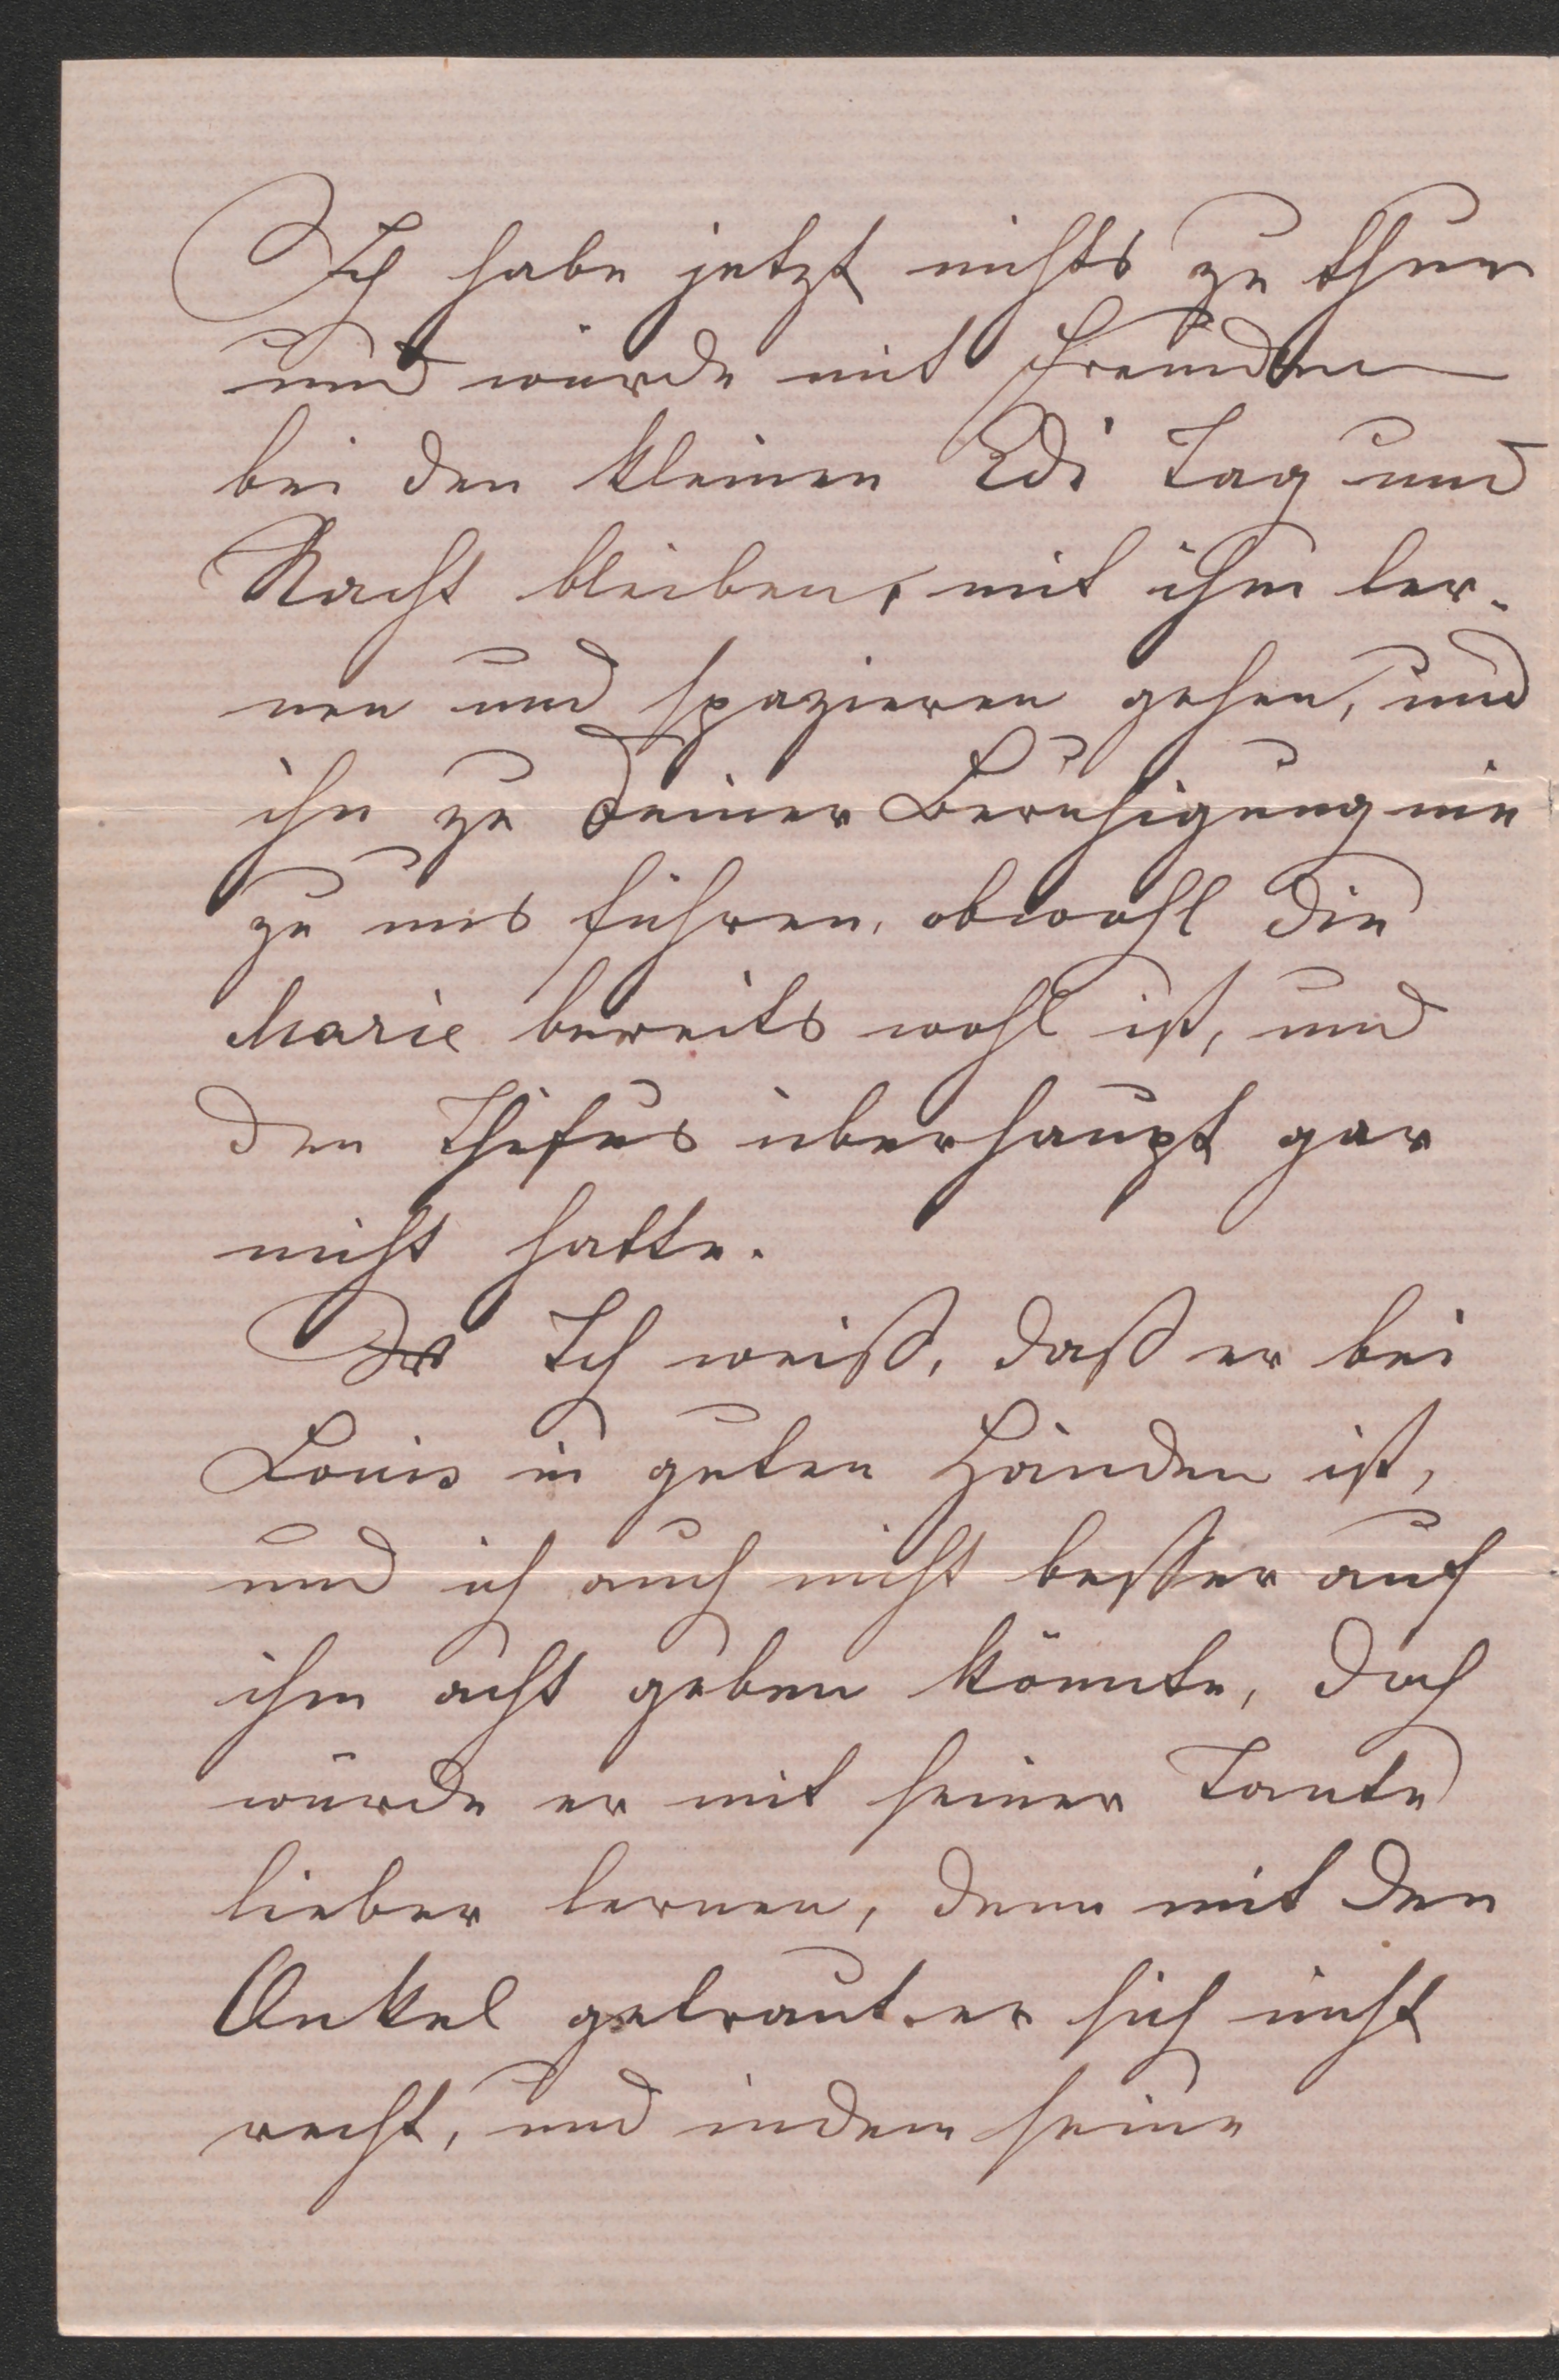 Ich habe jetzt nichts zu thun
und würde mit Freuden
bei den kleinen Edi Tag und
Nacht bleiben, mit ihm ler-
nen und spazieren gehen, und
ihn zu Deiner Beruhigung nie
zu uns führen, obwohl die
Marie bereits wohl ist, und
den Thifus überhaupt gar
nicht hatte.
Ich weiß, daß er bei
Louis in guten Händen ist,
und ich auch nicht besser auf
ihm acht geben könnte, doch
würde er mit seiner Tante
lieber lernen, denn mit den
Onkel getraut er sich nicht
recht, und indem seine